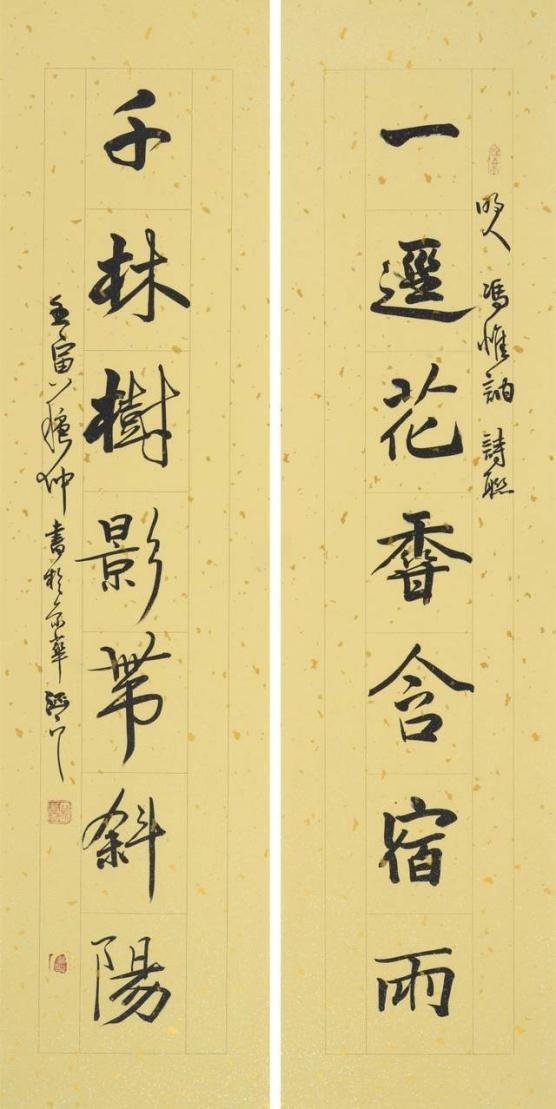 明人 馮惟訥 詩聯
一逕花香含宿雨
千林樹影帶斜陽
壬寅穐仲書於京華